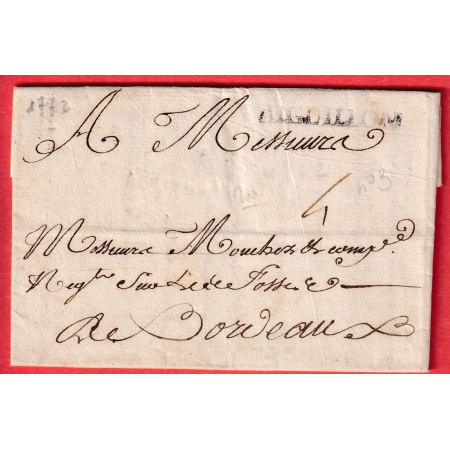 1772
A Messieurs
4
n° 3
Messieurs Mouchez & comp.e
Neg.ts Sur Le de Fossé
De Bordeaux